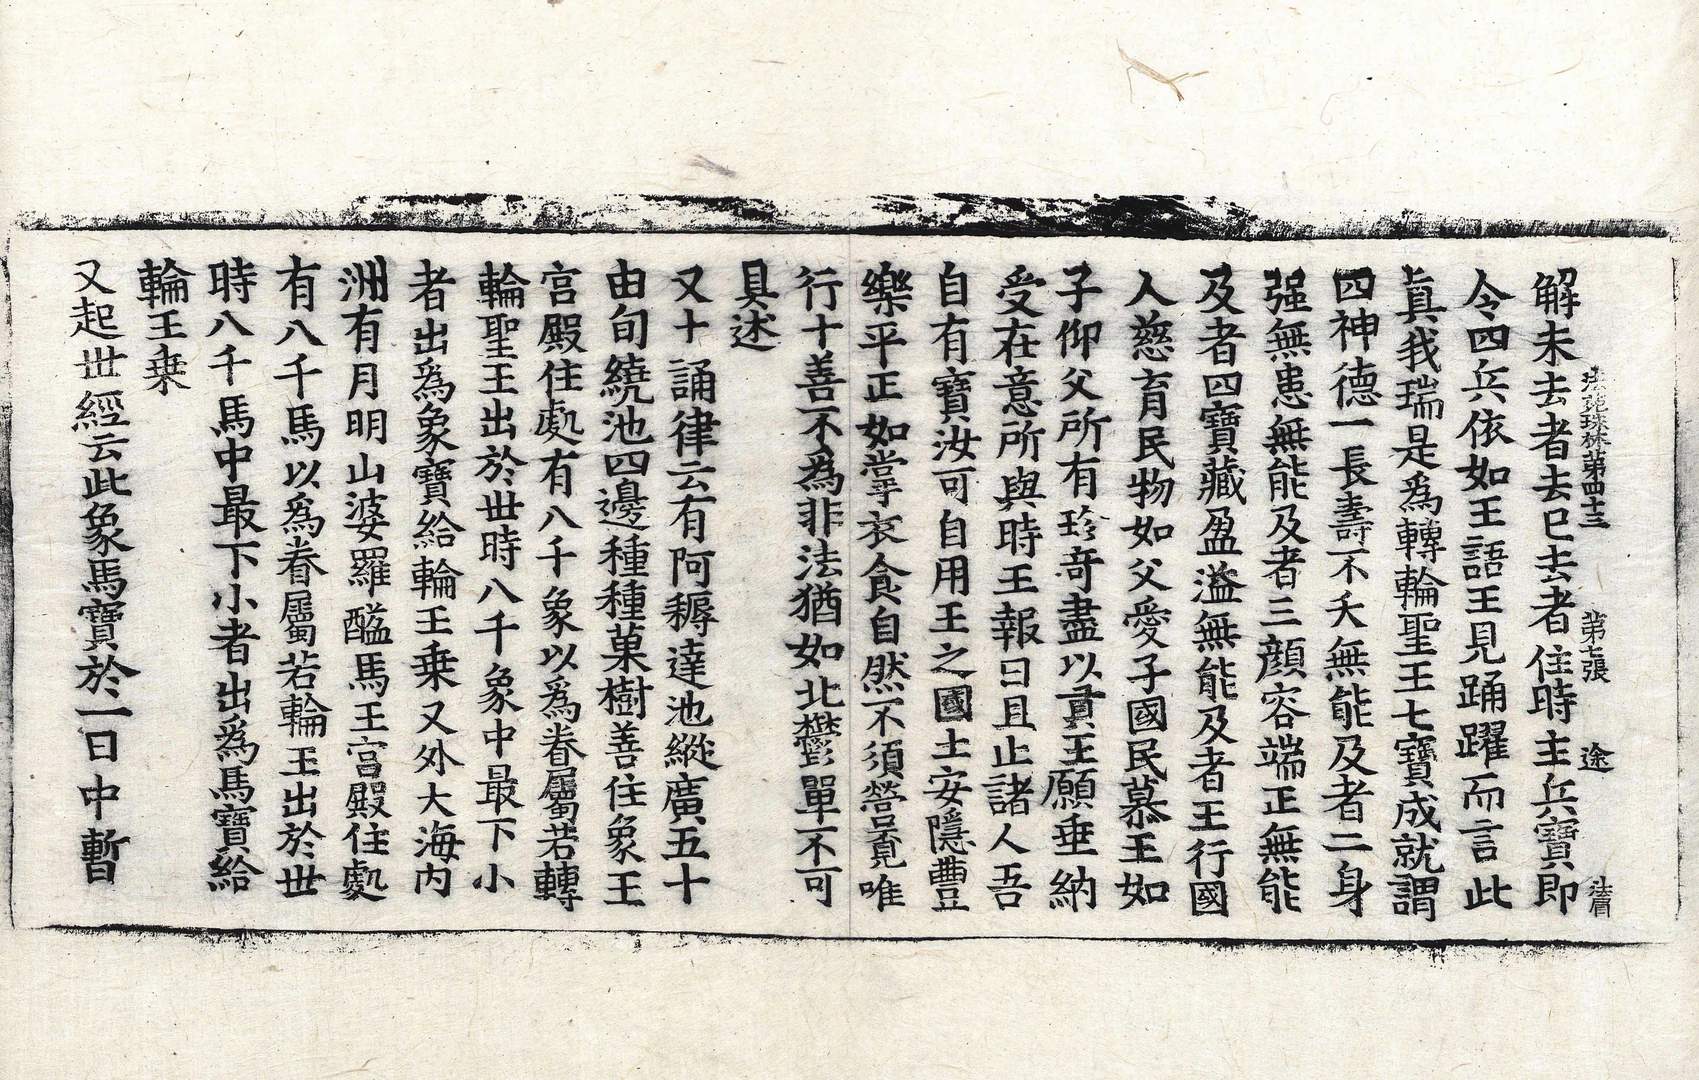 法苑珠林第四十三 第七張 途
解未去者去已去者住時主兵寶即
令四兵依如王語王見踊躍而言此
眞我瑞是爲轉輪聖王七寶成就謂
四神德一長壽不夭無能及者二身
强無患無能及者三顔容端正無能
及者四寶藏盈溢無能及者王行國
人慈育民物如父愛子國民慕王如
子仰父所有珍奇盡以貢王願垂納
受在意所與時王報曰且止諸人吾
自有寶汝可自用王之國土安隱豊
樂平正如掌衣食自然不須營覓唯
行十善不為非法猶如北欝單不可
具述
又十誦律云有阿耨達池縱廣五十
由旬繞池四邊種種菓樹善住象王
宮殿住處有八千象以爲眷屬若轉
輪聖王出於世時八千象中最下小
者出爲象寶給輪王乗又外大海內
洲有月明山婆羅醯馬王宮殿住處
有八千馬以爲眷屬若輪王出於世
時八千馬中最下小者出爲馬寶給
輪王乗
又起世經云此象馬寶於一日中暫